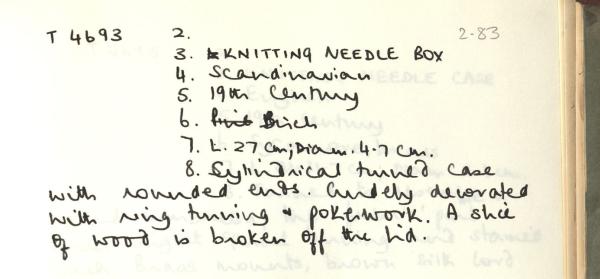 T 4693 2. 2-83
3. KNITTING NEEDLE BOX
4. Scandinavian
5. 19th Century
6. Birch
7. L. 27 cm; Diam. 4.7 cm.
8. Cylindrical turned case
with rounded ends. Crudely decorated
with ring turning & pokerwork. A slice
of wood is broken off the lid.